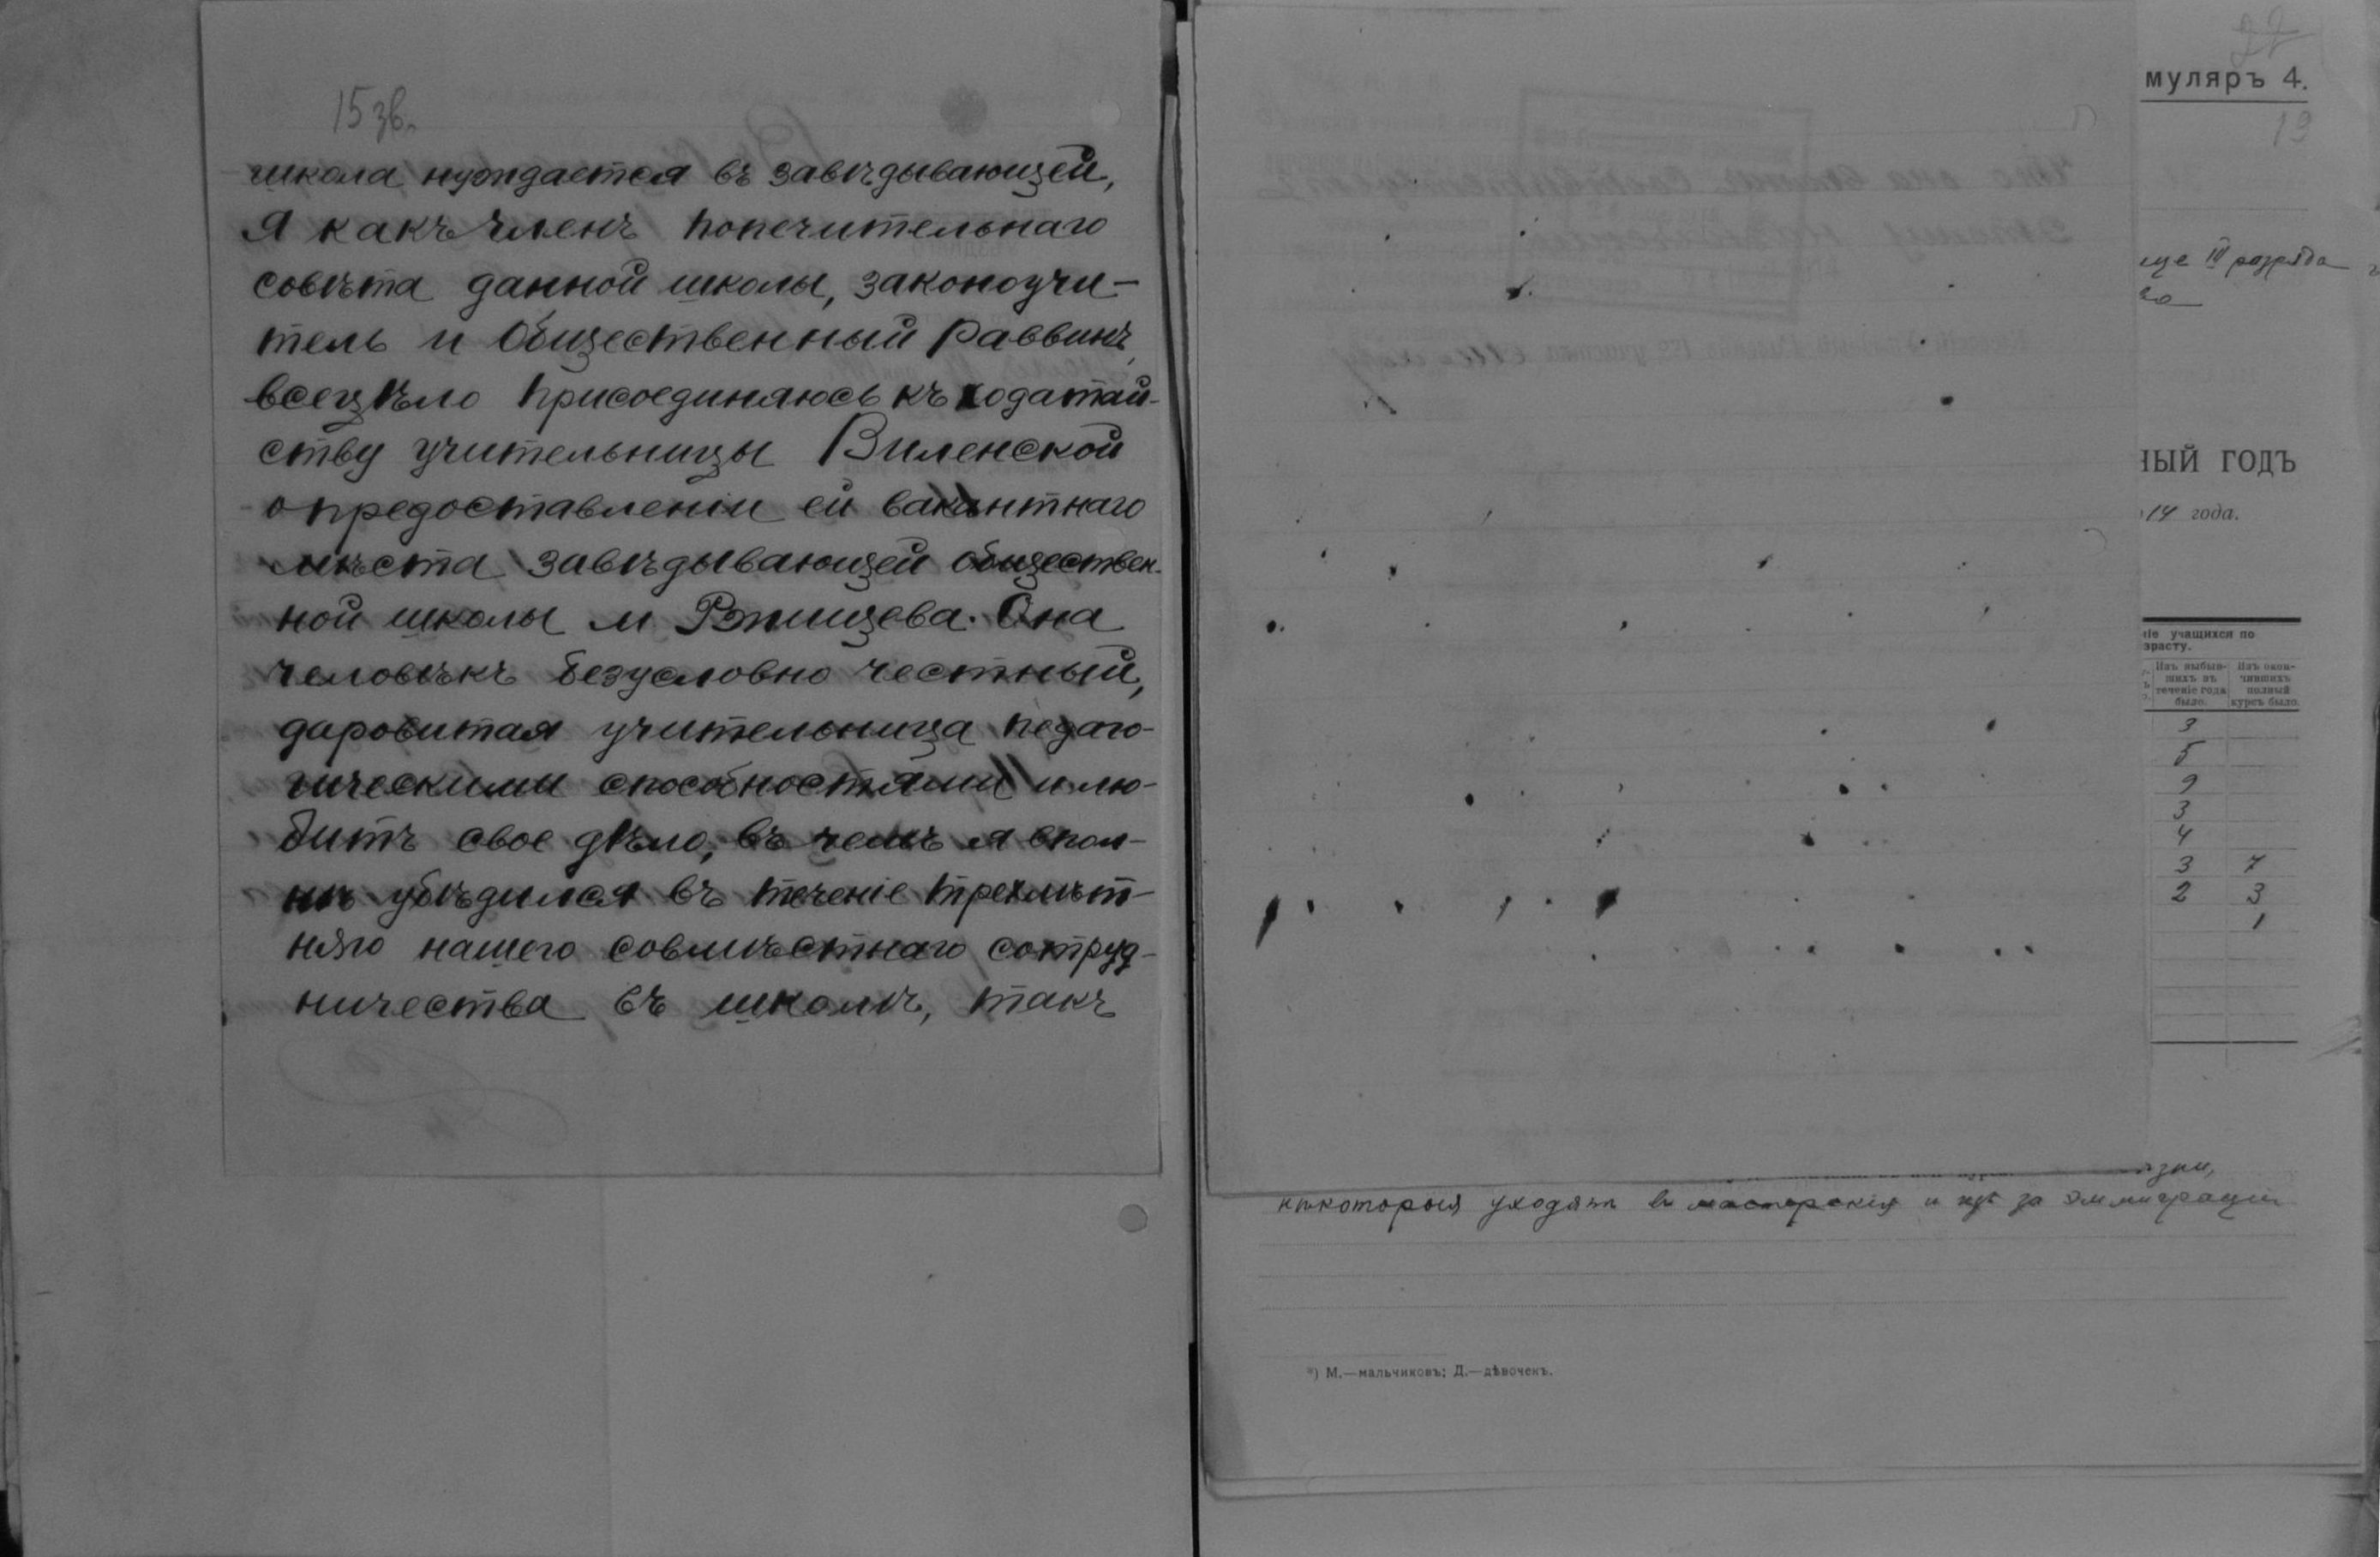 15 зв.
школа нуждается въ завѣдывающей,
Я какъ членъ попечительнаго
совѣта данной школы, законоучи-
тель и Общественный Раввинъ,
всецѣло присоединяюсь къ ходатай-
ству учительницы Виленской
о предоставленіи ей вакантнаго
мѣста завѣдывающей обществен-
ной школы м Рѣпищева. Она
человѣкъ безусловно честный,
даровитая учительница педаго-
гическими способностями и лю-
битъ свое дѣло, въ чемъ я впол-
нѣ убѣдился въ теченіе трехлѣт-
няго нашего совмѣстнаго сотруд-
ничества въ школѣ, такъ
муляръ 4.
13
ще III разряда
ный годъ
14 года.
ніе учащихся по
зрасту.
Изъ выбыв-
шихъ въ
теченіе года
было.
Изъ окон-
чившихъ
полный
курсъ было.
3
5
9
3
4
3 7
2 3
1
нѣкоторыя уходятъ въ мастерскія и за эммиграціи
*) М.—мальчиковъ; Д.—дѣвочекъ.